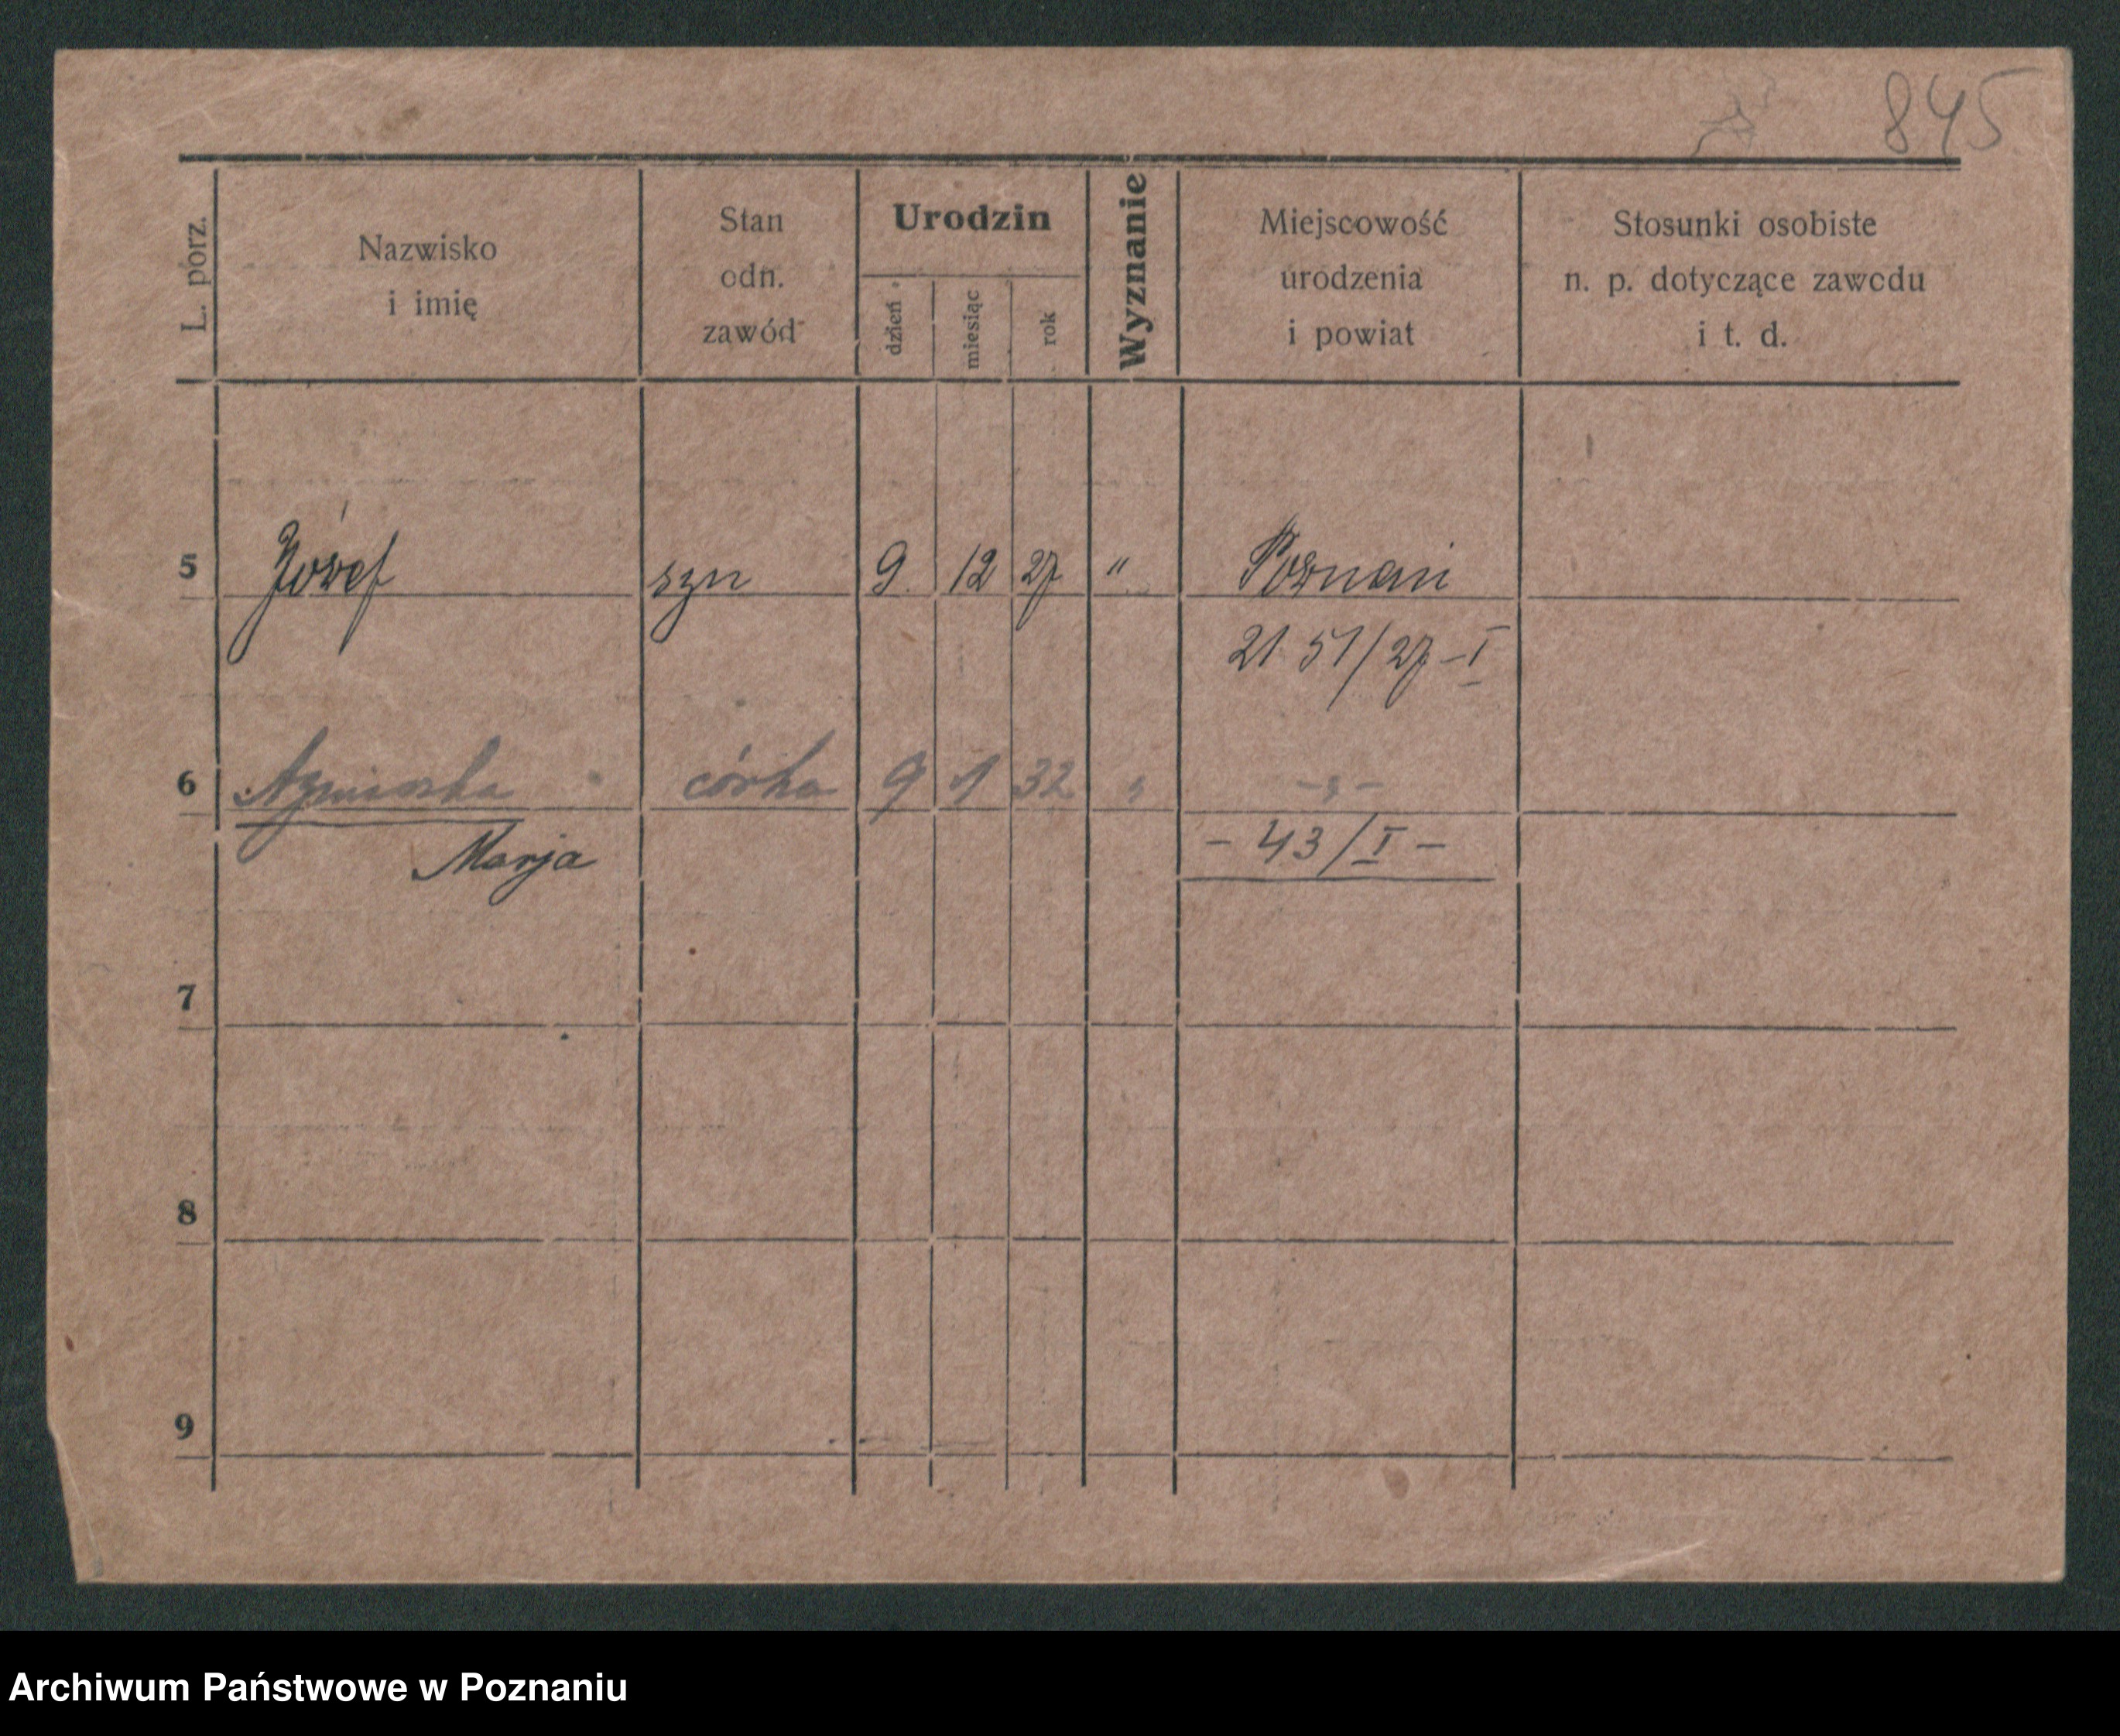 845
L. porz.
Nazwisko
i imię
Stan
odn.
zawód
Urodzin
dzień
miesiąc
rok
Wyznanie
Miejscowość
urodzenia
i powiat
Stosunki osobiste
n. p. dotyczące zawodu
i t. d.
5 Józef syn 9 12 27 " Poznań
2151/27-I
6 Agnieszka córka 9 1 32 " -"-
Marja - 43/I -
7
8
9
Archiwum Państwowe w Poznaniu